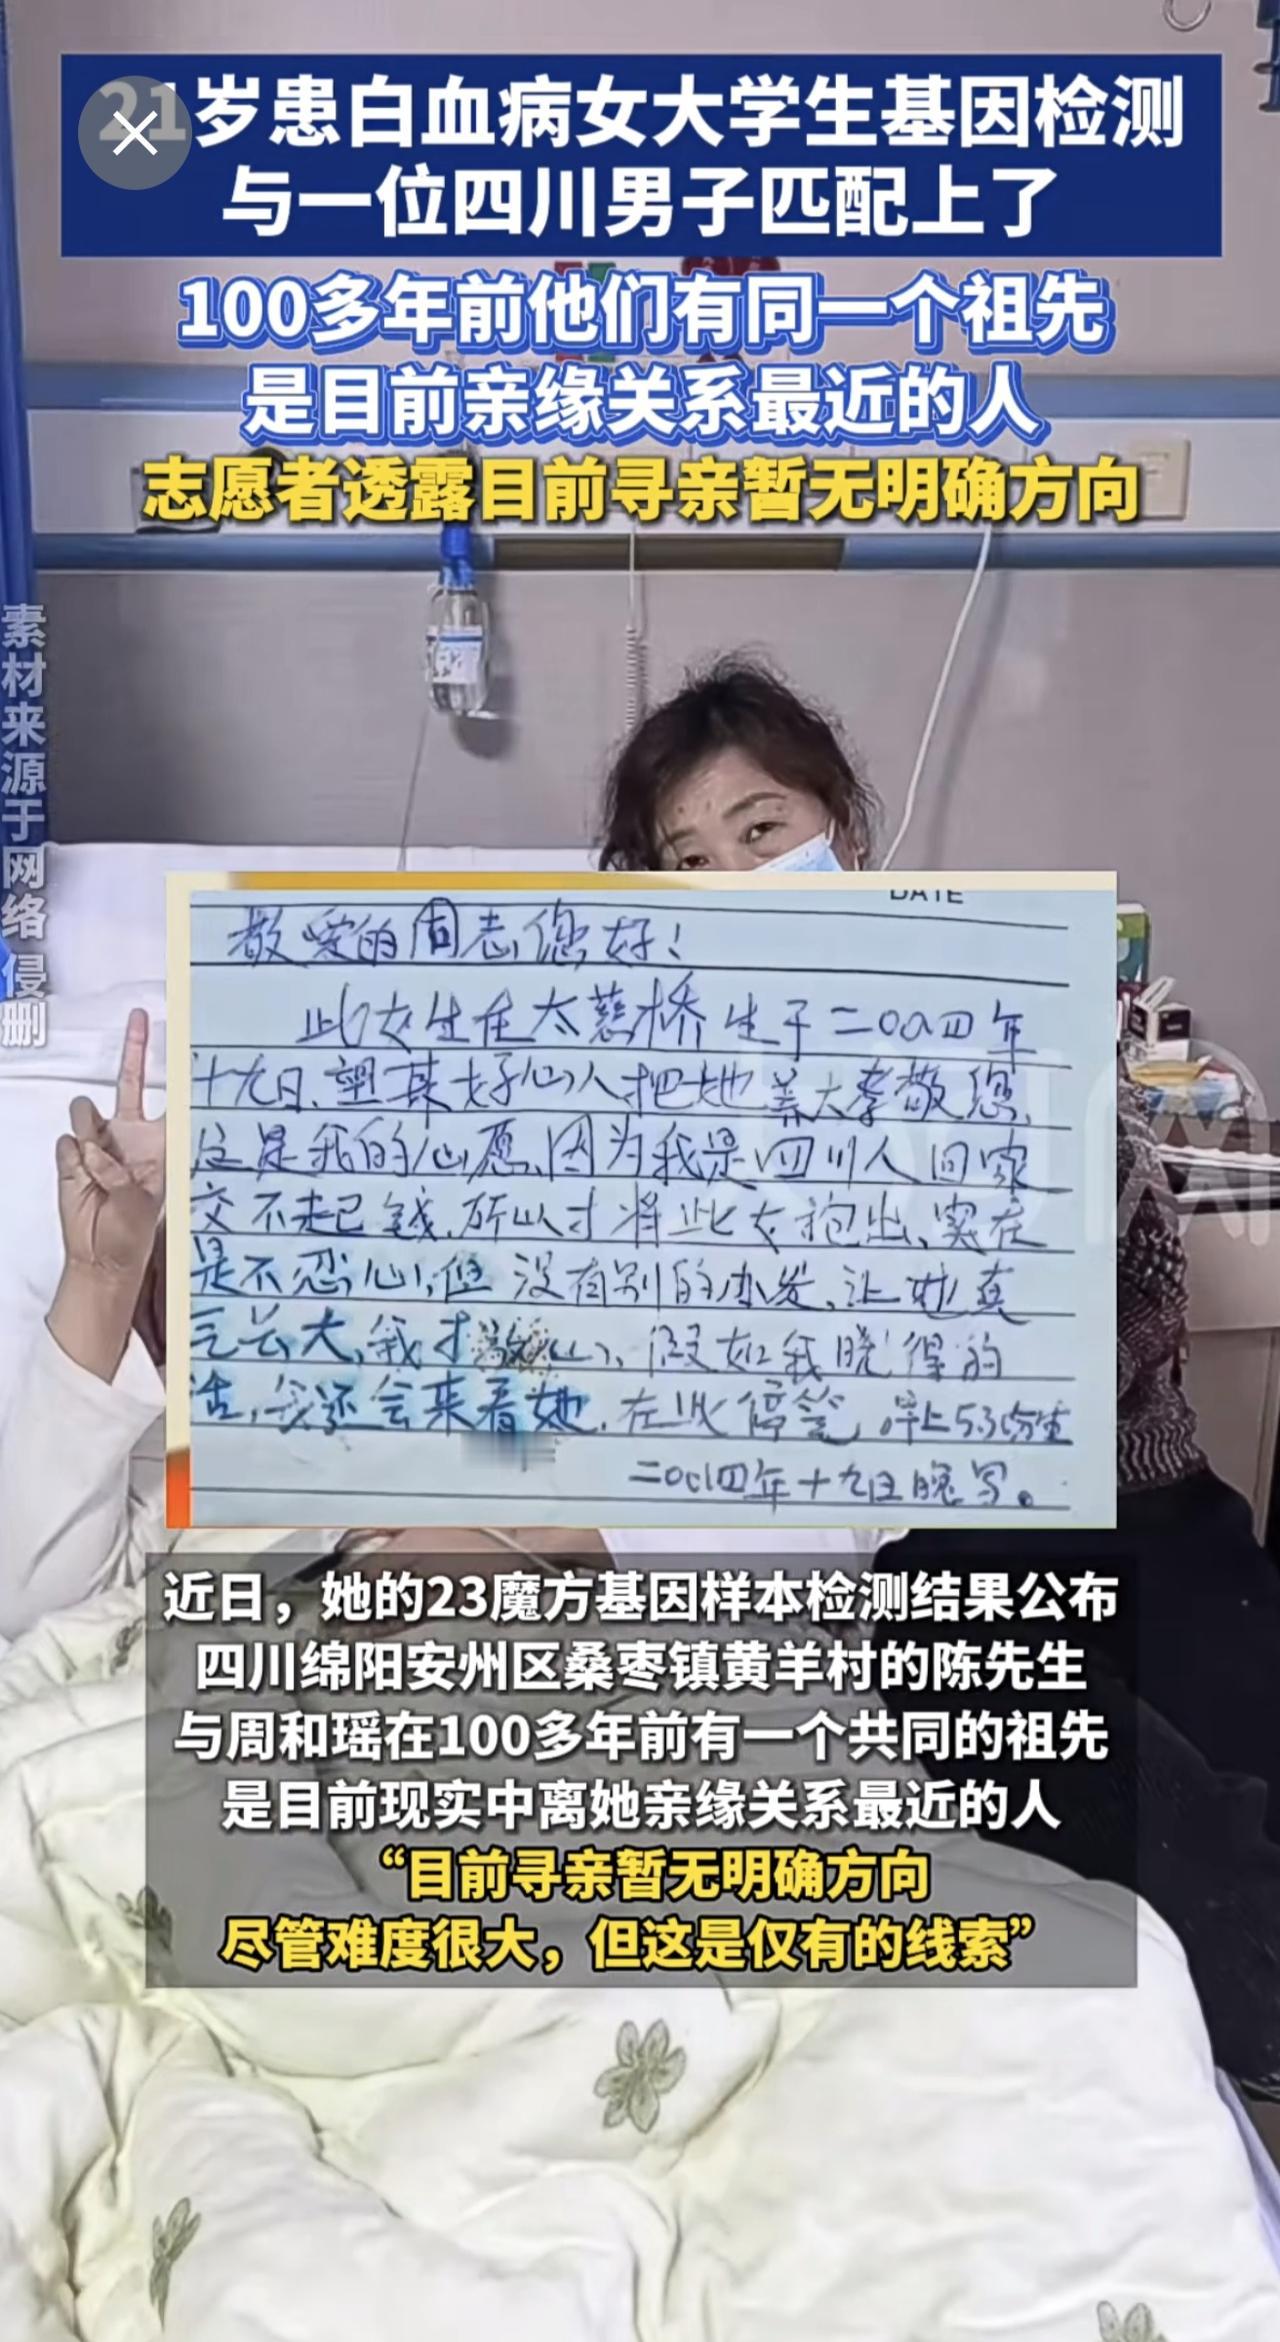 21岁患白血病女大学生基因检测
与一位四川男子匹配上了
100多年前他们有同一个祖先
是目前亲缘关系最近的人
志愿者透露目前寻亲暂无明确方向
素材来源于网络 侵删
DATE
敬爱的同志,您好!
此女生在太慈桥生于二00四年
十九日、望某好心人把她养大孝敬您、
这是我的心愿、因为我是四川人回家
交不起钱、所以才将此女抱出、实在
是不忍心,但没有别的办发、让她真
长大,我才放心、假如我晓得的
话,我还会来看她、在此停笔 早上5.30分生
二00四年十九日晚写。
近日，她的23魔方基因样本检测结果公布
四川绵阳安州区桑枣镇黄羊村的陈先生
与周和瑶在100多年前有一个共同的祖先
是目前现实中离她亲缘关系最近的人
“目前寻亲暂无明确方向
尽管难度很大，但这是仅有的线索”